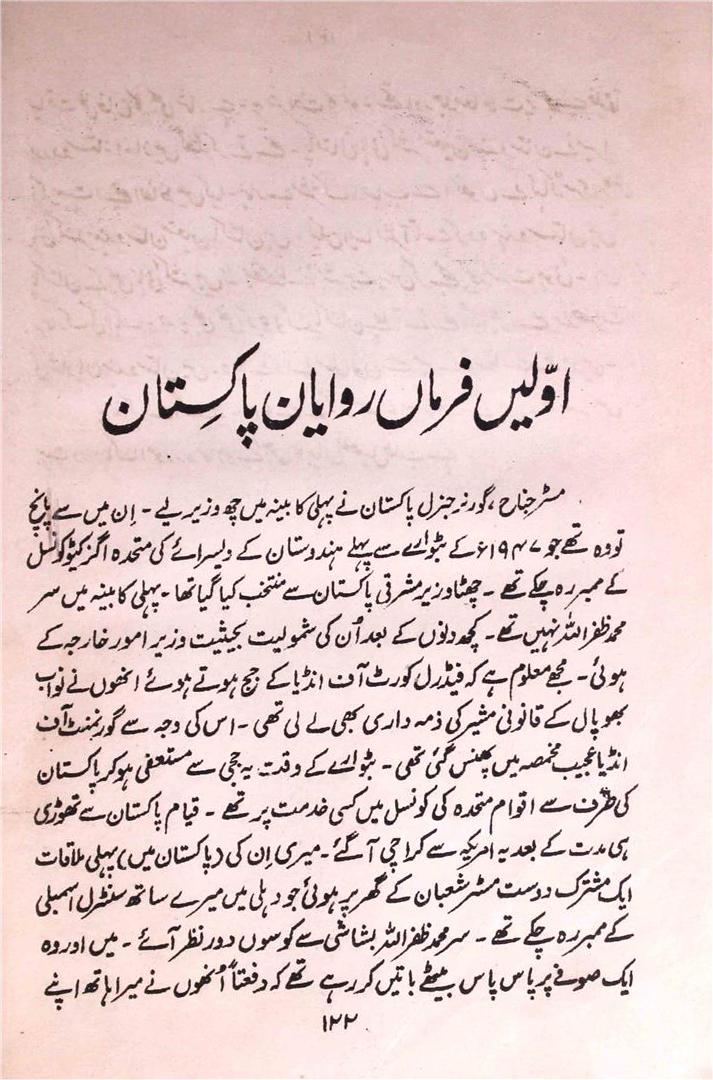 اوّلیں فرماں روایان پاکستان
مسٹر جناح، گورنر جنرل پاکستان نے پہلی کابینہ میں چھ وزیر لیے۔ اِن میں سے پانچ
تو وہ تھے جو ۱۹۴۷ء کے بٹوارے سے پہلے ہندوستان کے ویسرائے کی متحدہ اگزیکیٹو کونسل
کے ممبر رہ چکے تھے۔ چھٹا وزیر مشرقی پاکستان سے منتخب کیا گیا تھا۔ پہلی کابینہ میں سر
محمد ظفر اللہ نہیں تھے۔ کچھ دِنوں کے بعد اُن کی شمولیت بحیثیت وزیر امورِ خارجہ کے
ہوئی۔ مجھے معلوم ہے کہ فیڈرل کورٹ آف انڈیا کے جج ہوتے ہوئے انھوں نے نواب
بھوپال کے قانونی مشیر کی ذمہ داری بھی لے لی تھی۔ اس کی وجہ سے گورنمنٹ آف
انڈیا عجیب مخمصہ میں پھنس گئی تھی۔ بٹوارے کے وقت یہ ججی سے مستعفی ہو کر پاکستان
کی طرف سے اقوام متحدہ کی کونسل میں کسی خدمت پر تھے۔ قیام پاکستان سے تھوڑی
ہی مدت کے بعد یہ امریکہ سے کراچی آ گئے۔ میری اِن کی (پاکستان میں) پہلی ملاقات
ایک مشترک دوست مسٹر شعبان کے گھر پر ہوئی جو دہلی میں میرے ساتھ سنٹرل اسمبلی
کے ممبر رہ چکے تھے۔ سر محمد ظفر اللہ بشاشی سے کوسوں دور نظر آئے۔ میں اور وہ
ایک صوفے پر پاس پاس بیٹھے باتیں کر رہے تھے کہ دفعتاً اُنھوں نے میرا ہاتھ اپنے
۱۲۲